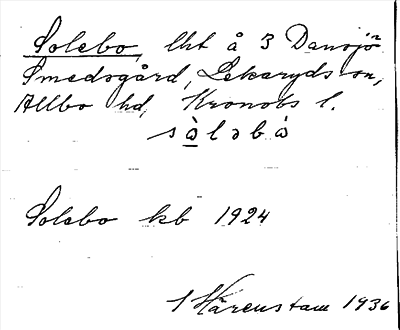 Solebo, lht å 3 Dansjö
Smedsgård, Lekaryds sn,
Allbo hd, Kronobs l.
sòləbò
Solebo kb 1924
I Härenstam 1936